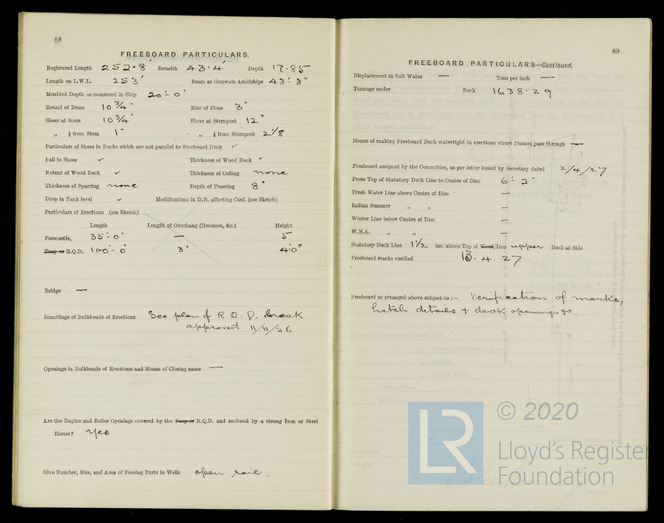 88
FREEBOARD PARTICULARS.
Registered Length 252.8' Breadth 43.4' Depth 17.85
Length on L.W.L. 253' Beam at Gunwale Amidships 43' 3"
Moulded Depth as measured in Ship 20'-0"
Round of Beam 10 3/4" Rise of Floor 3"
Sheer at Stem 10 3/4" Sheer at Sternpost 12"
" 1/8 from Stem 1" " 1/8 from Sternpost 2 1/8
Particulars of Sheer in Decks which are not parallel to Freeboard Deck ✓
Fall in Sheer ✓ Thickness of Wood Deck ✓
Extent of Wood Deck ✓ Thickness of Ceiling none
Thickness of Sparring none Depth of Framing 8"
Drop in Tank level ✓ Modifications in D.B. affecting Coef. (see Sketch)
Particulars of Erections (see Sketch)
Length Length of Overhang (Recesses, &c.) Height
Forecastle, 35'-0" — 5
Poop or R.Q.D. 100'-0" 3" 4'0"
Bridge —
Scantlings of Bulkheads of Erections See plan of R.Q.D. break
approved 11/11/26
Openings in Bulkheads of Erections and Means of Closing same —
Are the Engine and Boiler Openings covered by the Poop or R.Q.D. and enclosed by a strong Iron or Steel
House? Yes
Give Number, Size, and Area of Freeing Ports in Wells open rail.
89
FREEBOARD PARTICULARS—Continued.
Displacement in Salt Water — Tons per inch —
Tonnage under Deck 1638.29
Means of making Freeboard Deck watertight in erections where Frames pass through —
Freeboard assigned by the Committee, as per letter issued by Secretary dated 2/4/27
From Top of Statutory Deck Line to Centre of Disc 6'-2"
Fresh Water Line above Centre of Disc —
Indian Summer " " —
Winter Line below Centre of Disc —
W.N.A. " " —
Statutory Deck Line 1 1/2 ins. above Top of Wood, Iron upper Deck at Side
Freeboard marks verified .4.27
Freeboard as arranged above subject to:— Verification of marks,
hatch details & deck openings &c.
LR © 2020
Lloyd's Register
Foundation